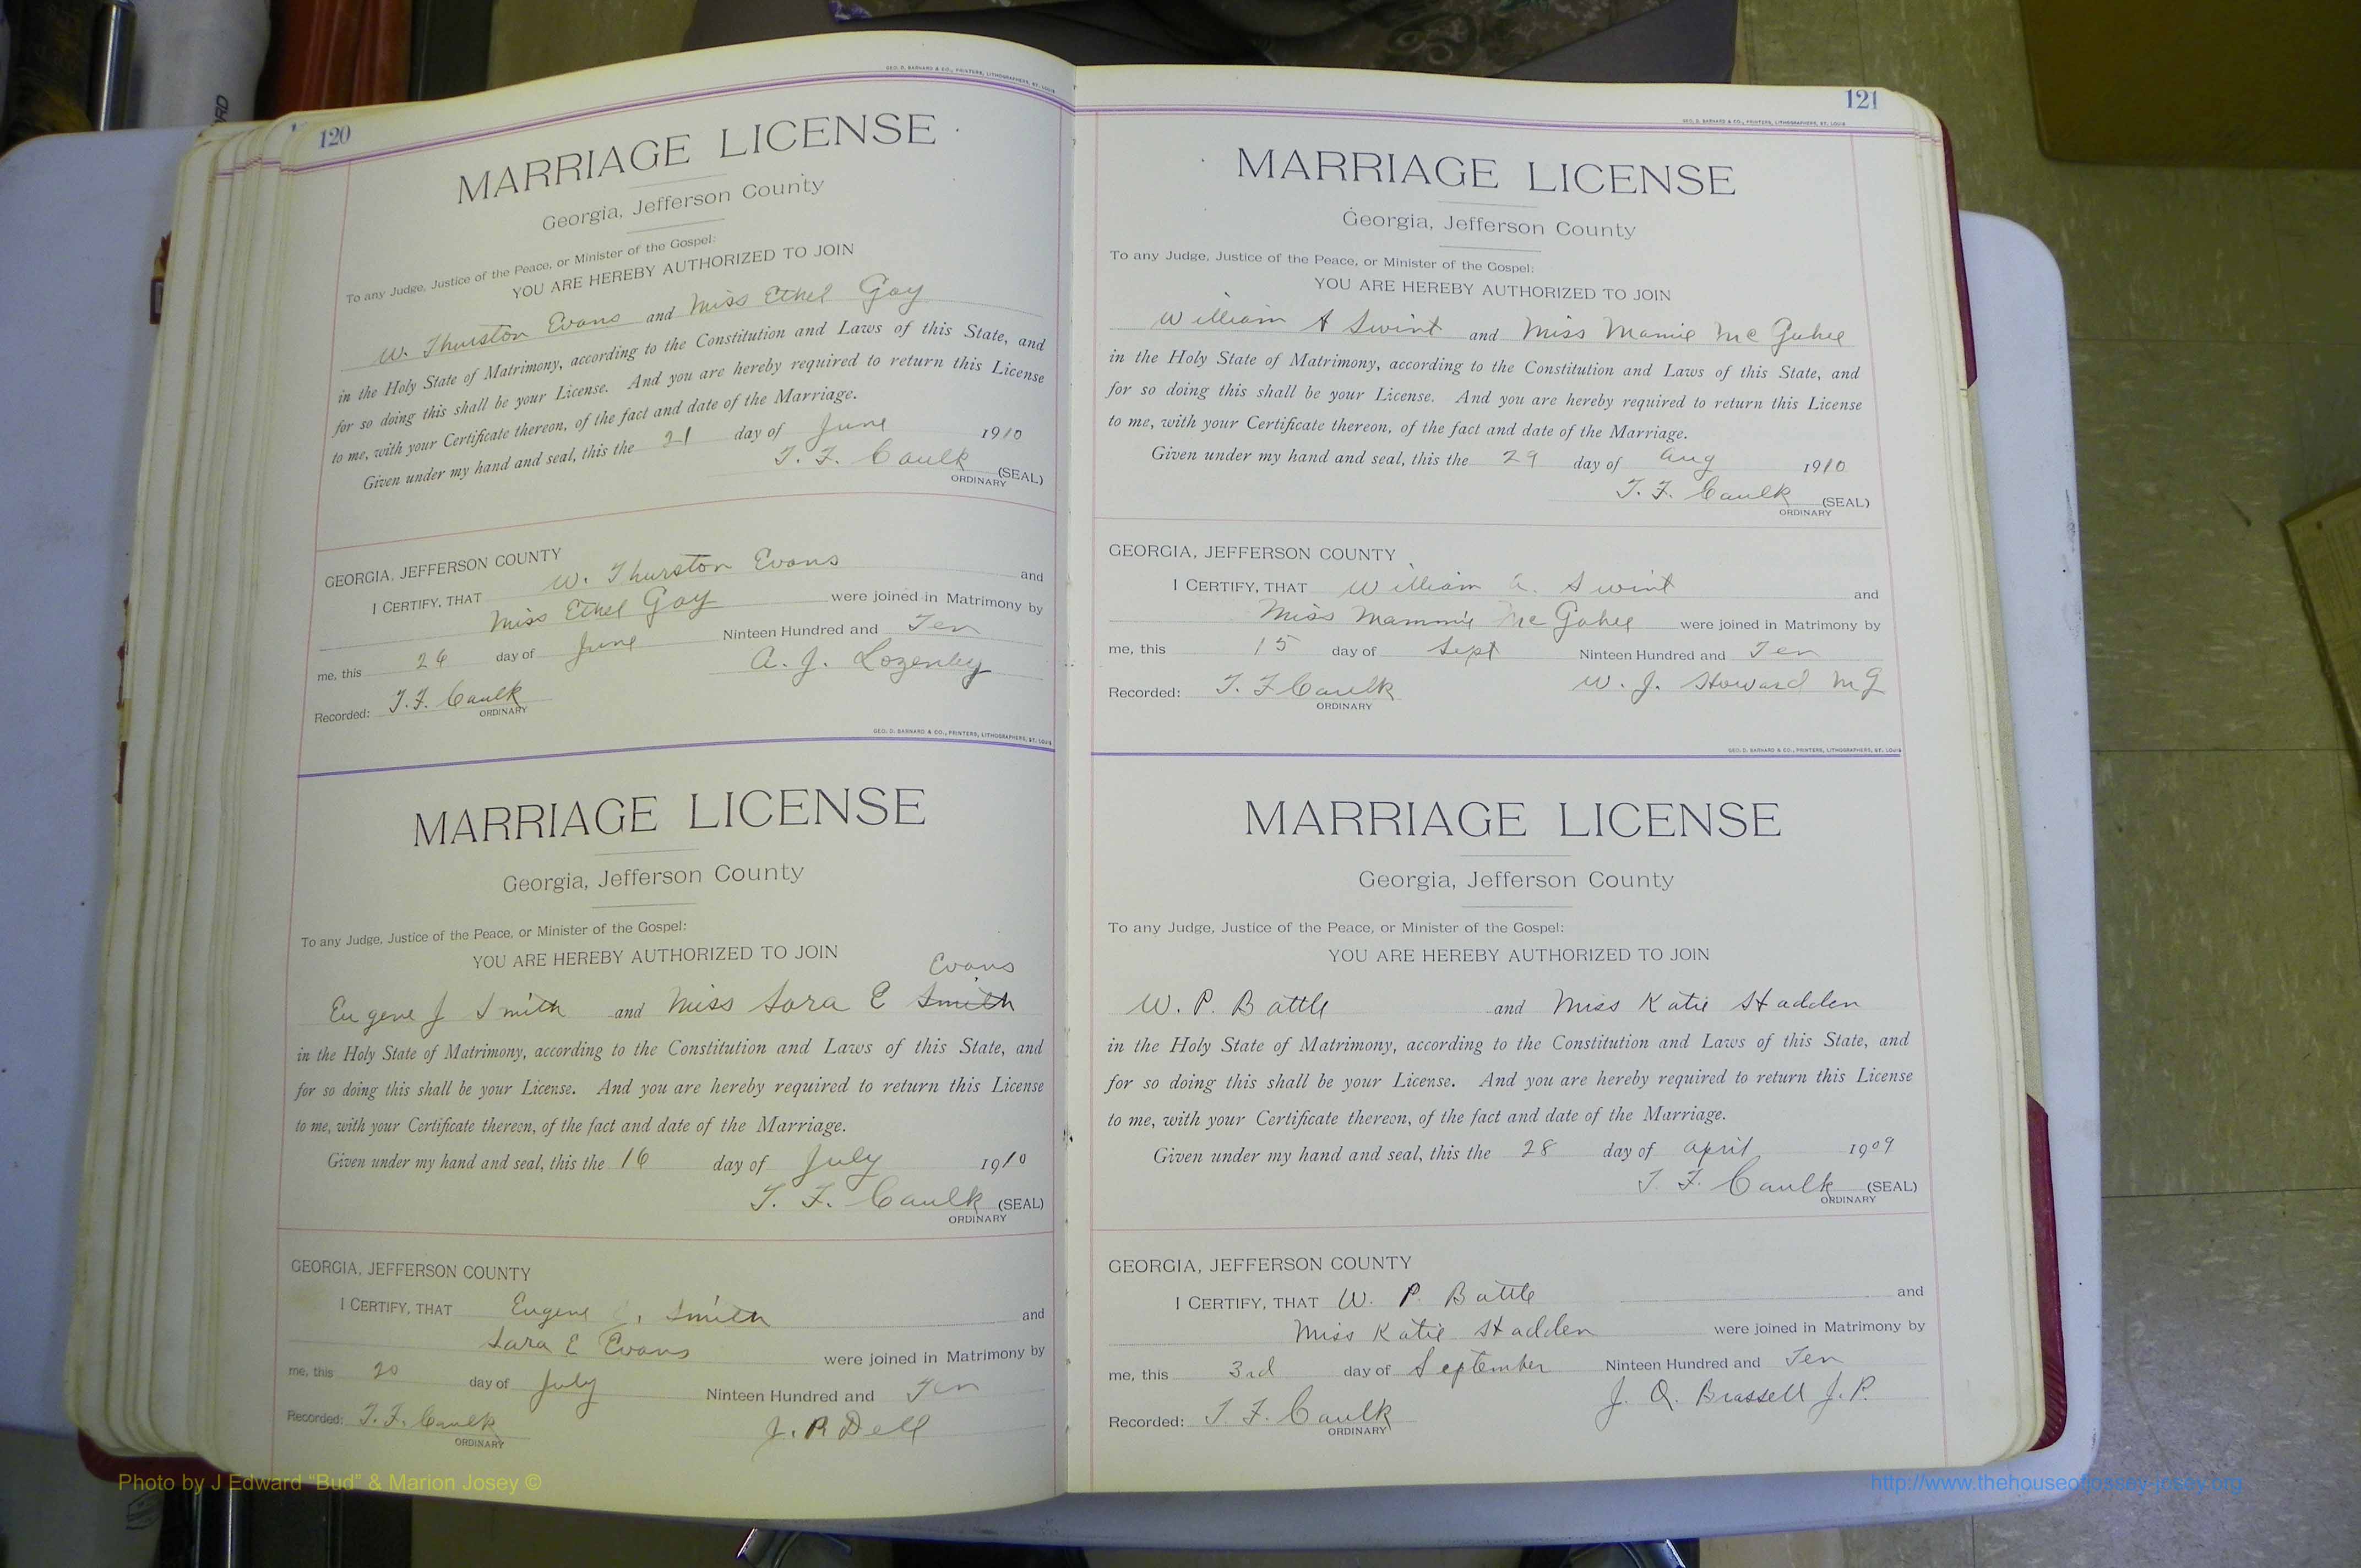 120
GEO. D. BARNARD & CO., PRINTERS, LITHOGRAPHERS, ST. LOUIS
MARRIAGE LICENSE
Georgia, Jefferson County
To any Judge, Justice of the Peace, or Minister of the Gospel:
YOU ARE HEREBY AUTHORIZED TO JOIN
W. Thurston Evans and Miss Ethel Gay
in the Holy State of Matrimony, according to the Constitution and Laws of this State, and
for so doing this shall be your License. And you are hereby required to return this License
to me, with your Certificate thereon, of the fact and date of the Marriage.
Given under my hand and seal, this the 21 day of June 1910
T. F. Caulk (SEAL)
ORDINARY
GEORGIA, JEFFERSON COUNTY
I CERTIFY, THAT W. Thurston Evans and
Miss Ethel Gay were joined in Matrimony by
me, this 26 day of June Ninteen Hundred and Ten
A. J. Lozenby
Recorded: T. F. Caulk
ORDINARY
GEO. D. BARNARD & CO., PRINTERS, LITHOGRAPHERS, ST. LOUIS
MARRIAGE LICENSE
Georgia, Jefferson County
To any Judge, Justice of the Peace, or Minister of the Gospel:
YOU ARE HEREBY AUTHORIZED TO JOIN
Evans
Eugene J Smith and Miss Sara E Smith
in the Holy State of Matrimony, according to the Constitution and Laws of this State, and
for so doing this shall be your License. And you are hereby required to return this License
to me, with your Certificate thereon, of the fact and date of the Marriage.
Given under my hand and seal, this the 16 day of July 1910
T. F. Caulk (SEAL)
ORDINARY
GEORGIA, JEFFERSON COUNTY
I CERTIFY, THAT Eugene Smith and
Sara E Evans were joined in Matrimony by
me, this 20 day of July Ninteen Hundred and Ten
J. R Dell
Recorded: T. F. Caulk
ORDINARY
121
GEO. D. BARNARD & CO., PRINTERS, LITHOGRAPHERS, ST. LOUIS
MARRIAGE LICENSE
Georgia, Jefferson County
To any Judge, Justice of the Peace, or Minister of the Gospel:
YOU ARE HEREBY AUTHORIZED TO JOIN
William A Swint and Miss Mamie McGahee
in the Holy State of Matrimony, according to the Constitution and Laws of this State, and
for so doing this shall be your License. And you are hereby required to return this License
to me, with your Certificate thereon, of the fact and date of the Marriage.
Given under my hand and seal, this the 29 day of Aug 1910
T. F. Caulk (SEAL)
ORDINARY
GEORGIA, JEFFERSON COUNTY
I CERTIFY, THAT William A. Swint and
Miss Mammie McGahee were joined in Matrimony by
me, this 15 day of Sept Ninteen Hundred and Ten
W. J. Howard M G
Recorded: T. F Caulk
ORDINARY
GEO. D. BARNARD & CO., PRINTERS, LITHOGRAPHERS, ST. LOUIS
MARRIAGE LICENSE
Georgia, Jefferson County
To any Judge, Justice of the Peace, or Minister of the Gospel:
YOU ARE HEREBY AUTHORIZED TO JOIN
W. P. Battle and Miss Katie Hadden
in the Holy State of Matrimony, according to the Constitution and Laws of this State, and
for so doing this shall be your License. And you are hereby required to return this License
to me, with your Certificate thereon, of the fact and date of the Marriage.
Given under my hand and seal, this the 28 day of April 1909
T. F. Caulk (SEAL)
ORDINARY
GEORGIA, JEFFERSON COUNTY
I CERTIFY, THAT W. P. Battle and
Miss Katie Hadden were joined in Matrimony by
me, this 3rd day of September Ninteen Hundred and Ten
J. Q. Brassell J. P.
Recorded: T. F. Caulk
ORDINARY
Photo by J Edward “Bud” & Marion Josey ©
http://www.thehouseofjossey-josey.org